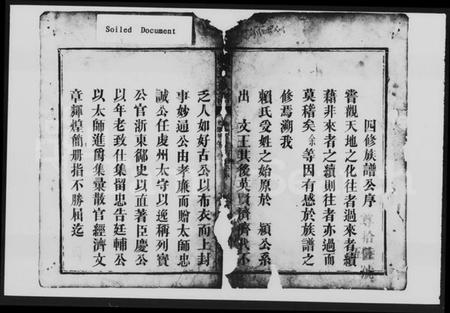 Soiled Document
四修族譜公序
嘗觀天地之化往者過來者續
藉非來者之續則往者亦過而
莫稽矣余等因有感於族譜之
修焉溯我
賴氏受姓之始原於 潁公系
出 文王其後英賢濟濟代不
乏人如好古公以布衣而上封
事妙通公由孝廉而贈太師忠
誠公任虔州太守以逸稱列賓
公官浙東御史以直著臣慶公
以年老致仕集留忠告廷輔公
以太師進爵集彙散官經濟文
章輝煌簡冊指不勝屈迄